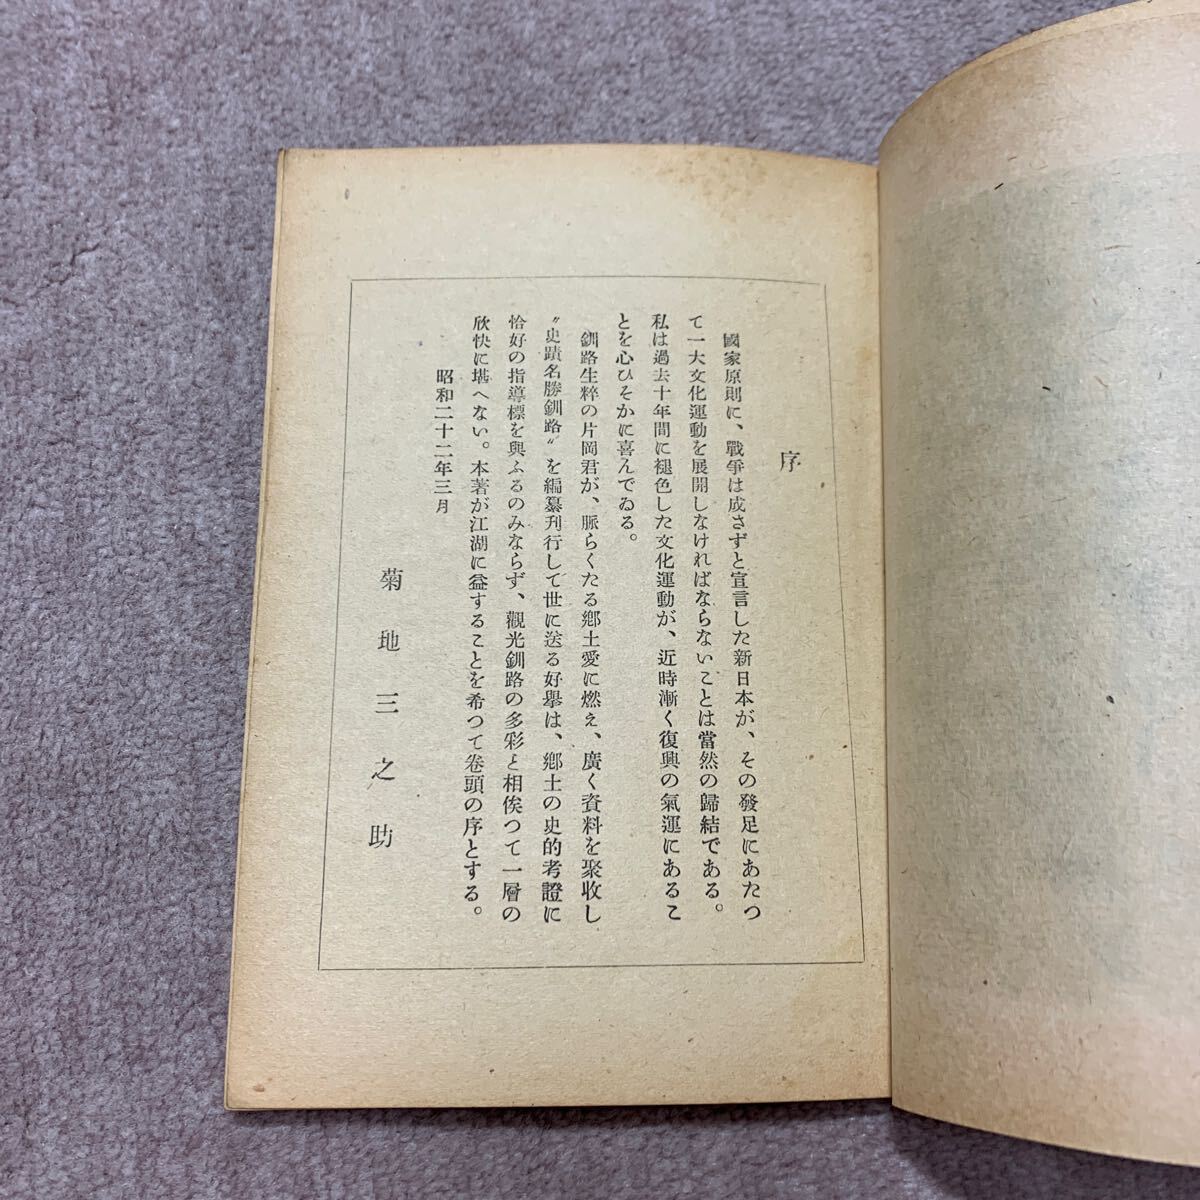 序
國家原則に、戰爭は成さずと宣言した新日本が、その發足にあたつ
て一大文化運動を展開しなければならないことは當然の歸結である。
私は過去十年間に褪色した文化運動が、近時漸く復興の氣運にあるこ
とを心ひそかに喜んでゐる。
釧路生粹の片岡君が、脈らくたる鄕土愛に燃え、廣く資料を聚收し
〝史蹟名勝釧路〟を編纂刊行して世に送る好擧は、鄕土の史的考證に
恰好の指導標を與ふるのみならず、觀光釧路の多彩と相俟つて一層の
欣快に堪へない。本著が江湖に益することを希つて卷頭の序とする。
昭和二十二年三月
菊地三之助